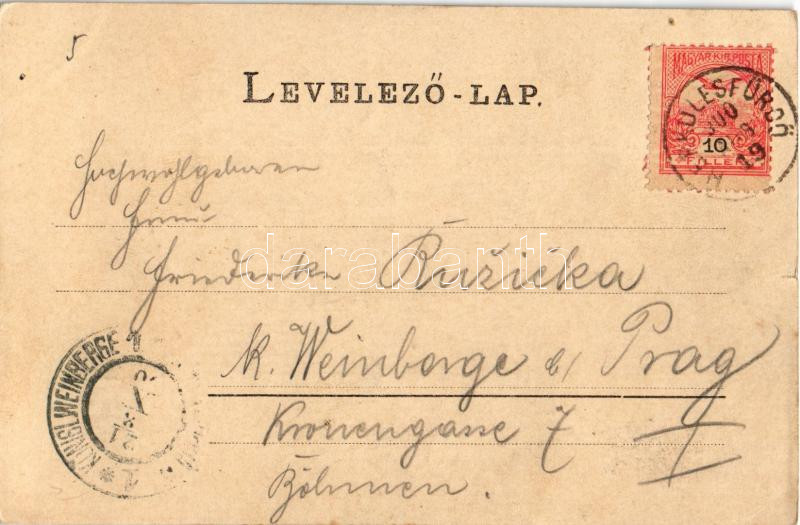 5
LEVELEZŐ-LAP.
MAGYAR KIR. POSTA
10
FILLÉR
KULESFÜRDŐ
19
Hochwohlgeboren
Frau
Friederike Ružička
K. Weinberge b/ Prag
Kronengasse 7.
Böhmen.
KÖNIGL. WEINBERGE 1
darabanth